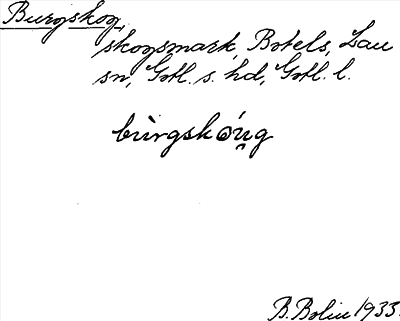 Burgskog,
skogsmark, Botels, Lau
sn, Gotl. s. hd, Gotl. l.
bùrgskóu̯g
B. Bolin 1933.